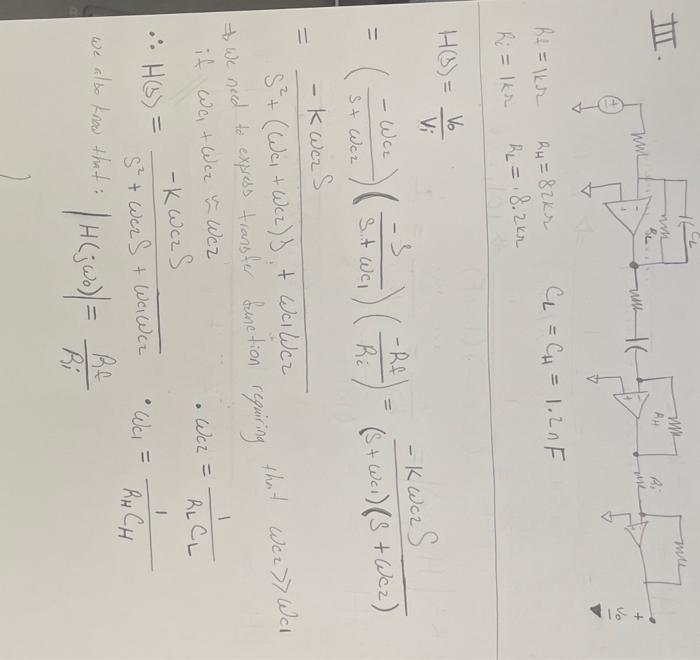 III.
C_L
R_L
R_H
R_i
+
V_o
R_f = 1kΩ R_H = 82kΩ C_L = C_H = 1.2nF
R_i = 1kΩ R_L = 8.2kΩ
H(s) = V_o/V_i
= (-ω_c2/(s + ω_c2)) (-s/(s + ω_c1)) (-R_f/R_i) = -K ω_c2 s/((s + ω_c1)(s + ω_c2))
= -K ω_c2 s/(s² + (ω_c1 + ω_c2)s + ω_c1 ω_c2)
⇒ we need to express transfer function requiring that ω_c2 >> ω_c1
if ω_c1 + ω_c2 ≈ ω_c2 • ω_c2 = 1/(R_L C_L)
∴ H(s) = -K ω_c2 s/(s² + ω_c2 s + ω_c1 ω_c2) • ω_c1 = 1/(R_H C_H)
we also know that: |H(jω_o)| = R_f/R_i